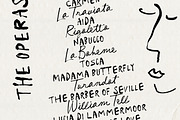 THE OPERAS
CARMEN
La Traviata
AIDA
Rigoletto
NABUCCO
La Bohème
TOSCA
MADAMA BUTTERFLY
Turandot
THE BARBER OF SEVILLE
William Tell
LUCIA DI LAMMERMOOR
LOVE